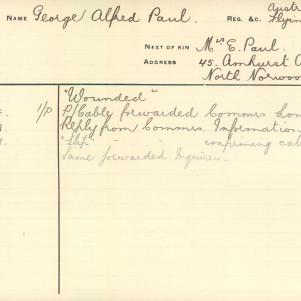 NAME George Alfred Paul. REG. &C. Austra
Flyin
NEXT OF KIN Mrs E. Paul.
ADDRESS 45. Amhurst
North Norwoo
"Wounded"
1/P P/Cable forwarded Commrs Lon
Reply from Commrs. Information
confirming cab
Same forwarded Inquirer.